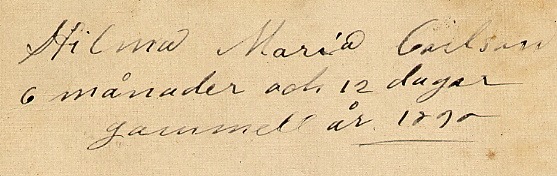 Hilma Maria Carlson
6 månader och 12 dagar
gammell år 1890